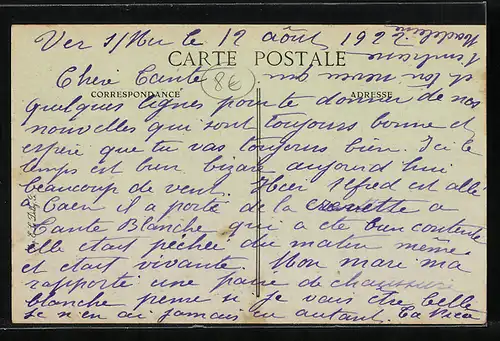 Ver s/Mer le 12 août 1922
CARTE POSTALE
86
Chere Tante
CORRESPONDANCE
ADRESSE
quelques lignes pour te donner de nos
nouvelles qui sont toujours bonne et
espere que tu vas toujours bien. Ici le
temps est bien bizare aujourd hui
beaucoup de vent. Hier Alfred est allé
a Caen il a porté de la crevette a
Tante Blanche qui a été bien contente
elle etait pechée du matin même
et etait vivante. Mon mari ma
rapporté une paire de chaussure
blanche pense si je vais etre belle
je n en ai jamais eu autant. Ta Niece
Madeleine